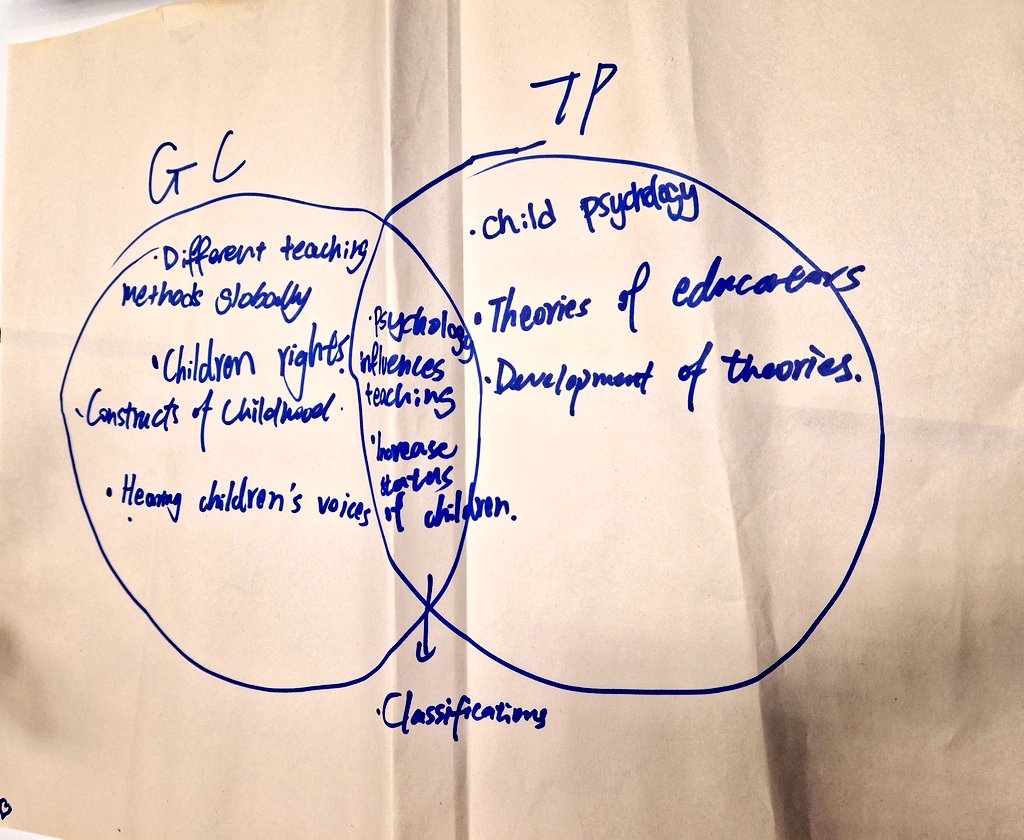 TP
GC
·Different teaching
methods globally
·Children rights.
·Constructs of Childhood.
·Hearing children's voices
·Psychology
influences
teaching
·Increase
status
of children.
·Child psychology
·Theories of educators
·Development of theories.
·Classifications